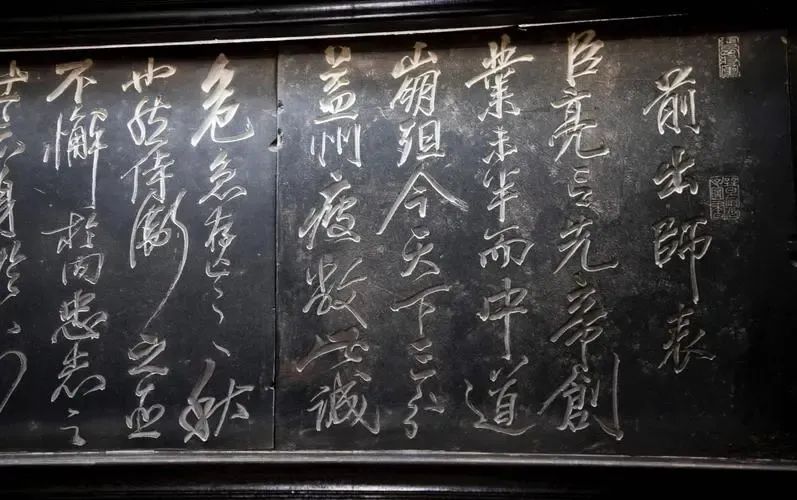 前出師表
臣亮言先帝創
業未半而中道
崩殂今天下三分
益州疲敝此誠
危急存亡之秋
也然侍衛之臣
不懈於內忠志之
士忘身於